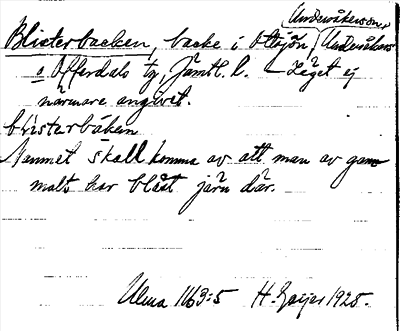 Undersåkers sn o.
Blisterbacken, backe i Ottsjön / Undersåkers
o Offerdals tg, Jämtl. l. – Läget ej
närmare angivet.
blistarbáken
Namnet skall komma av att man av gam-
malt har blåst järn där.
Ulma 1163:5 H. Geijer 1925.